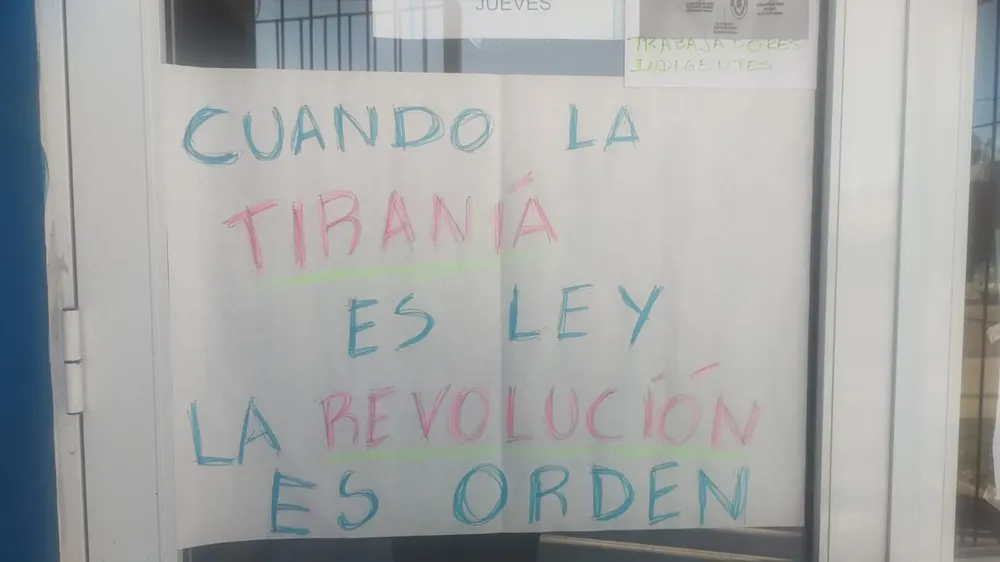 JUEVES
TRABAJADORES
INDIGENTES
CUANDO LA
TIRANÍA
ES LEY
LA REVOLUCÍÓN
ES ORDEN